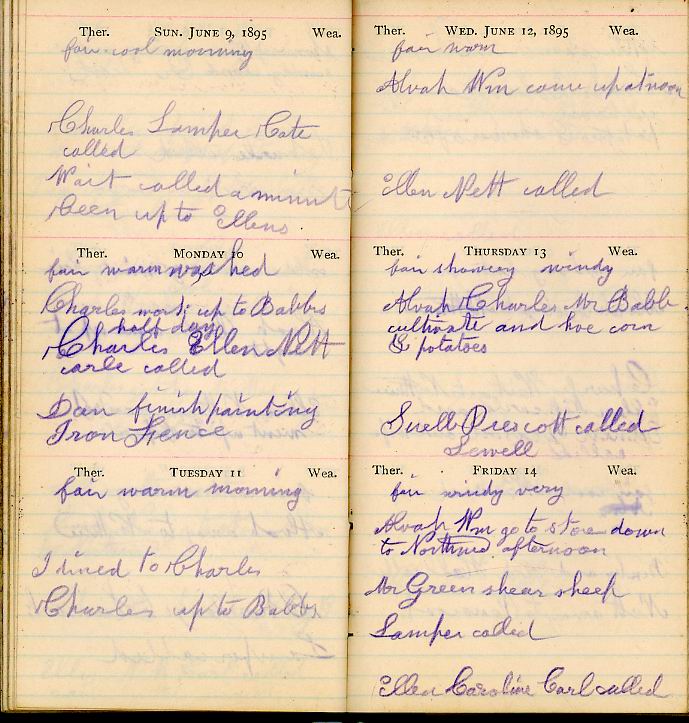 Ther. SUN. JUNE 9, 1895 Wea.
fair cool morning
Charles Lamper Cate
called
Wait called a minut
been up to Ellens
Ther. MONDAY 10 Wea.
fair warm washed
Charles work up to Babbs
half day
Charles Ellen Nett
carle called
Dan finish painting
Iron Fence
Ther. TUESDAY 11 Wea.
fair warm morning
I tined to Charles
Charles up to Babbs
Ther. WED. JUNE 12, 1895 Wea.
fair warm
Alvah Wm come up at noon
Ellen Nett called
Ther. THURSDAY 13 Wea.
fair showery windy
Alvah Charles Mr Babb
cultivate and hoe corn
& potatoes
Snell Prescott called
Sewell
Ther. FRIDAY 14 Wea.
fair windy very
Alvah Wm go to store down
to afternoon
Mr Green shear sheep
Lamper called
Ellen Caroline Carl called